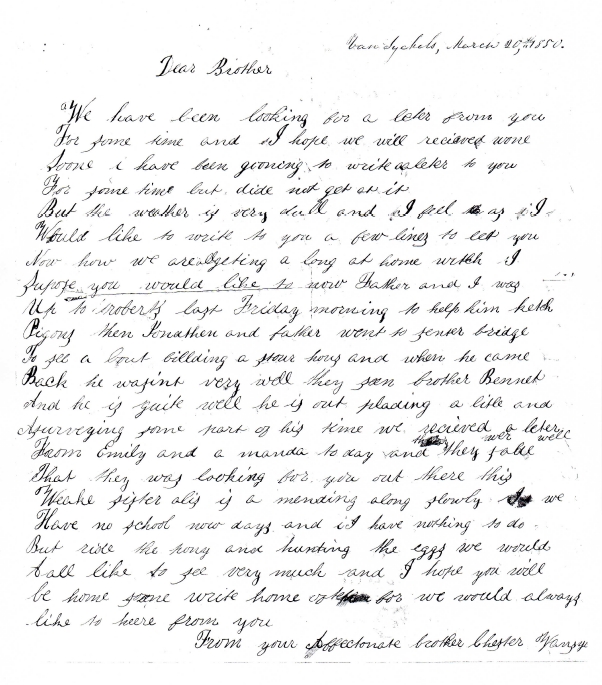 Vandyckels, March 20,th 1850.
Dear Brother
We have been looking for a leter from you
For some time and I hope we will recieved wone
Soone i have been gooning to write a leter to you
For some time but dide not get at it
But the weather is very dull and I feel as I
Would like to write to you a few lines to let you
Now how we are all geting a long at home witch I
Supose you would like to now Father and I was
Up to roberts last Friday morning to help him ketch
Pigons then Jonathen and father went to senter bridge
To see a bout billding a stour hous and when he came
Back he wasint very well they seen brother Bennet
And he is quite well he is out plading a litle and
A surveying some part of his time we recieved a leter
From Emily and a manda to day and they wer well
That they was looking for you out there this
Weake sister alis is a mending along slowly we
Have no school now days and i have nothing to do
But ride the pony and hunting the eggs we would
all like to see very much and I hope you will
be home soone write home for we would always
like to heere from you
From your Affectonate brother Chester